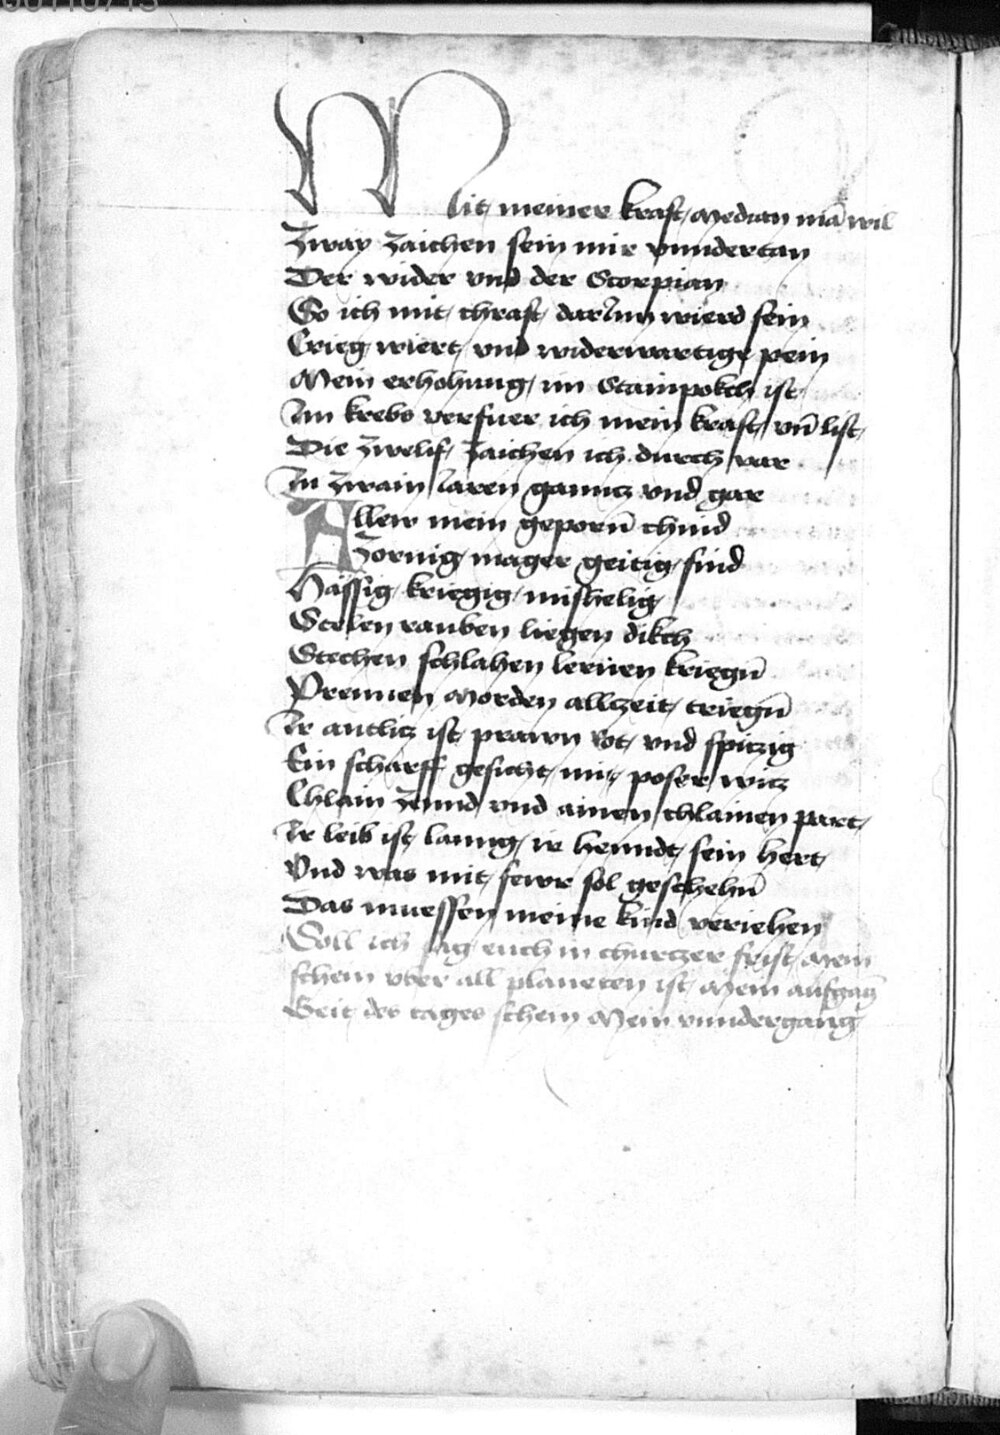 Mit meiner kraft, Median mā wil
Zway zaichen sein mir vnndertan
Der wider vnd der Scorpian
So ich mit chraft darinn wierd sein
Crieg wiert vnd widerwartige pein
Mein erhohung im Stainpokch ist
Im krebs verfuer ich mein kraft vn̄ list
Die zwelif zaichen ich durch var
In zwain Iaren ganntz vnd gar
Allew mein geporn̄ chind
Zornig mager geitig sind
Hässig kriegig mishelig
Stelen rauben liegen dikch
Stechen schlahen lernen kriegn̄
Prennen Morden allczeit triegn̄
Ir antlicz ist prawn Rot vnd spitzig
Ein scharff gesicht mit poser witz
Chlain zennd vnd ainen chlainen part
Ir leib ist lanng ir henndt sein hert
Vnd was mit fewr sol geschehn̄
Das muessen meine kind veriehen
Soll ich sag euch in churczer frist Mein
schein vber all planeten ist Mein aufgāg
Geit des tages schein Mein vnndergang